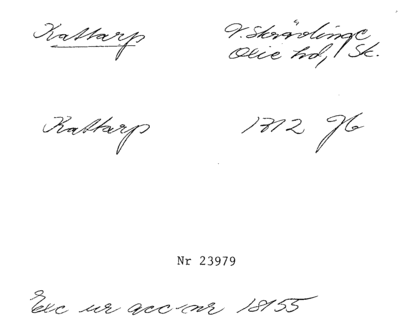 Kattarp V. Skrävlinge
Oxie hd, Sk.
Kattarp 1712 Jb
Nr 23979
Exc ur acc-nr 18155